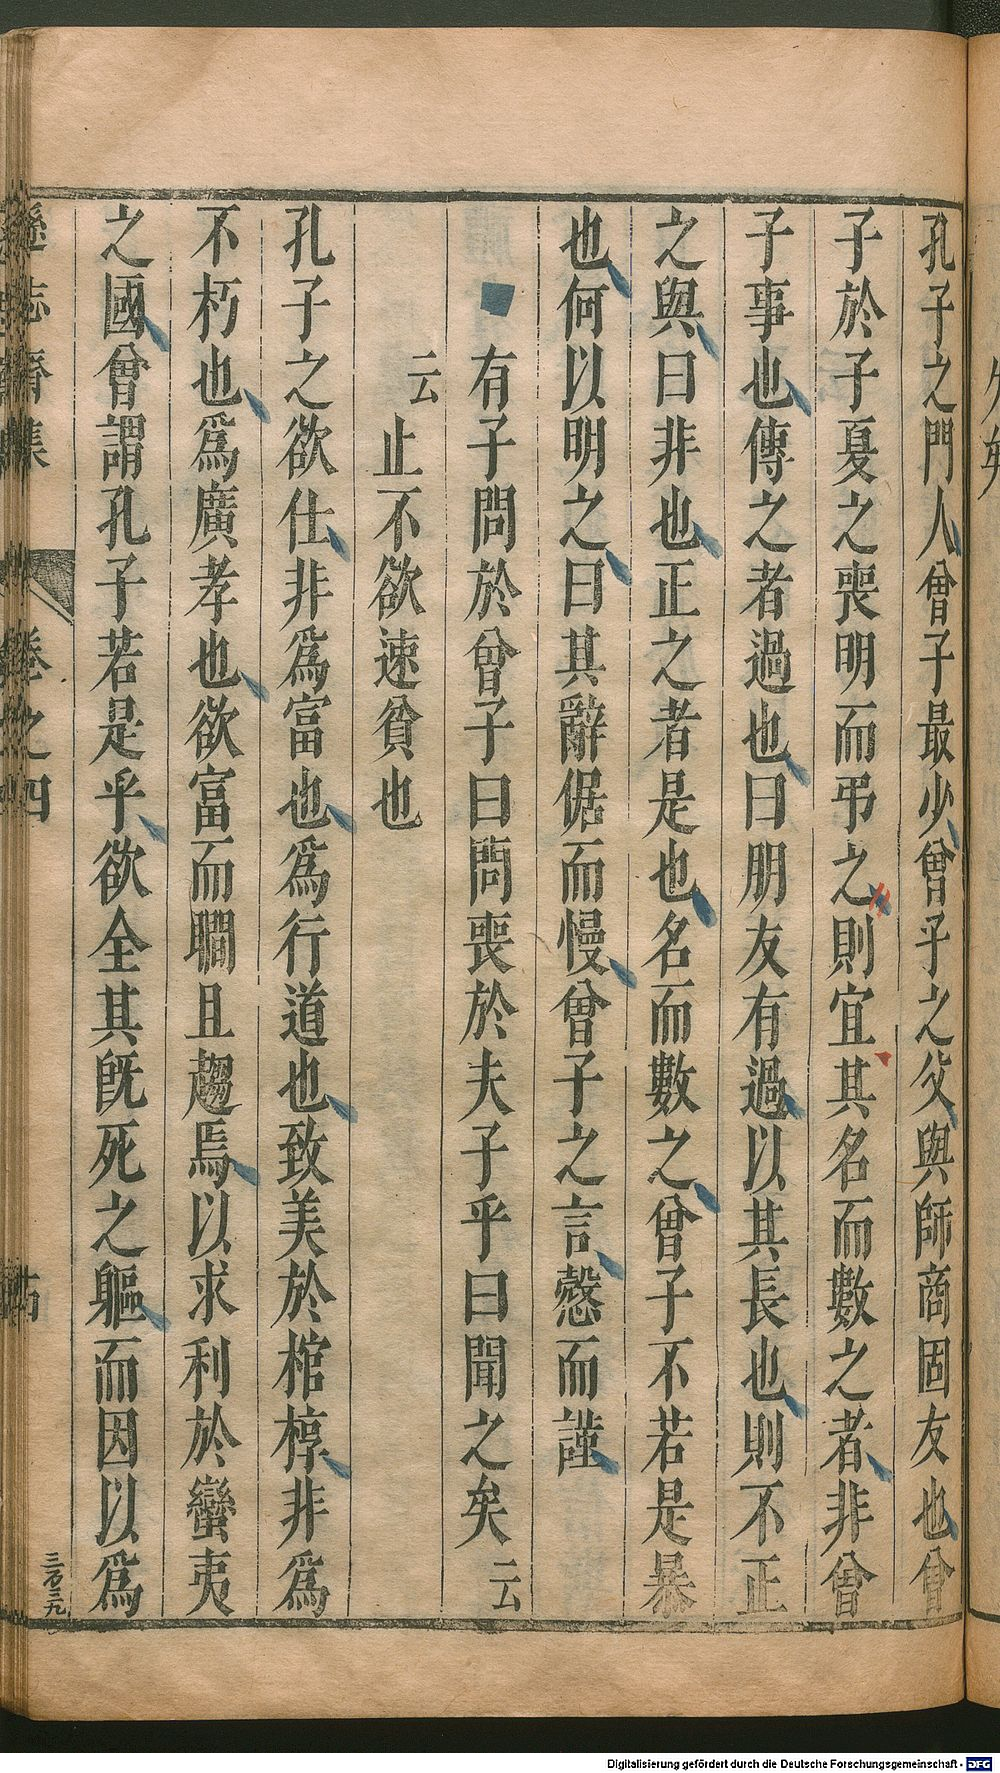 孔子之門人曾子最少曾子之父與師商固友也曾
子於子夏之喪明而弔之則宜其名而數之者非曾
子事也傳之者過也曰朋友有過以其長也則不正
之與曰非也正之者是也名而數之曾子不若是暴
也何以明之曰其辭倨而慢曾子之言慤而謹
有子問於曾子曰問喪於夫子乎曰聞之矣云
云止不欲速貧也
孔子之欲仕非爲富也爲行道也致美於棺椁非爲
不朽也爲廣孝也欲富而瞷且趨焉以求利於蠻夷
之國曾謂孔子若是乎欲全其旣死之軀而因以爲
遜志齋集
卷之四
三百三九
Digitalisierung gefördert durch die Deutsche Forschungsgemeinschaft - DFG